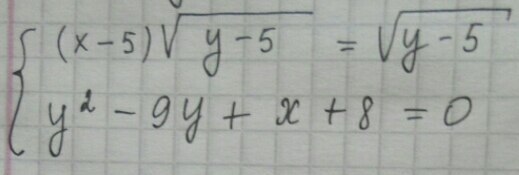 (x-5)√(y-5) = √(y-5)
y² - 9y + x + 8 = 0